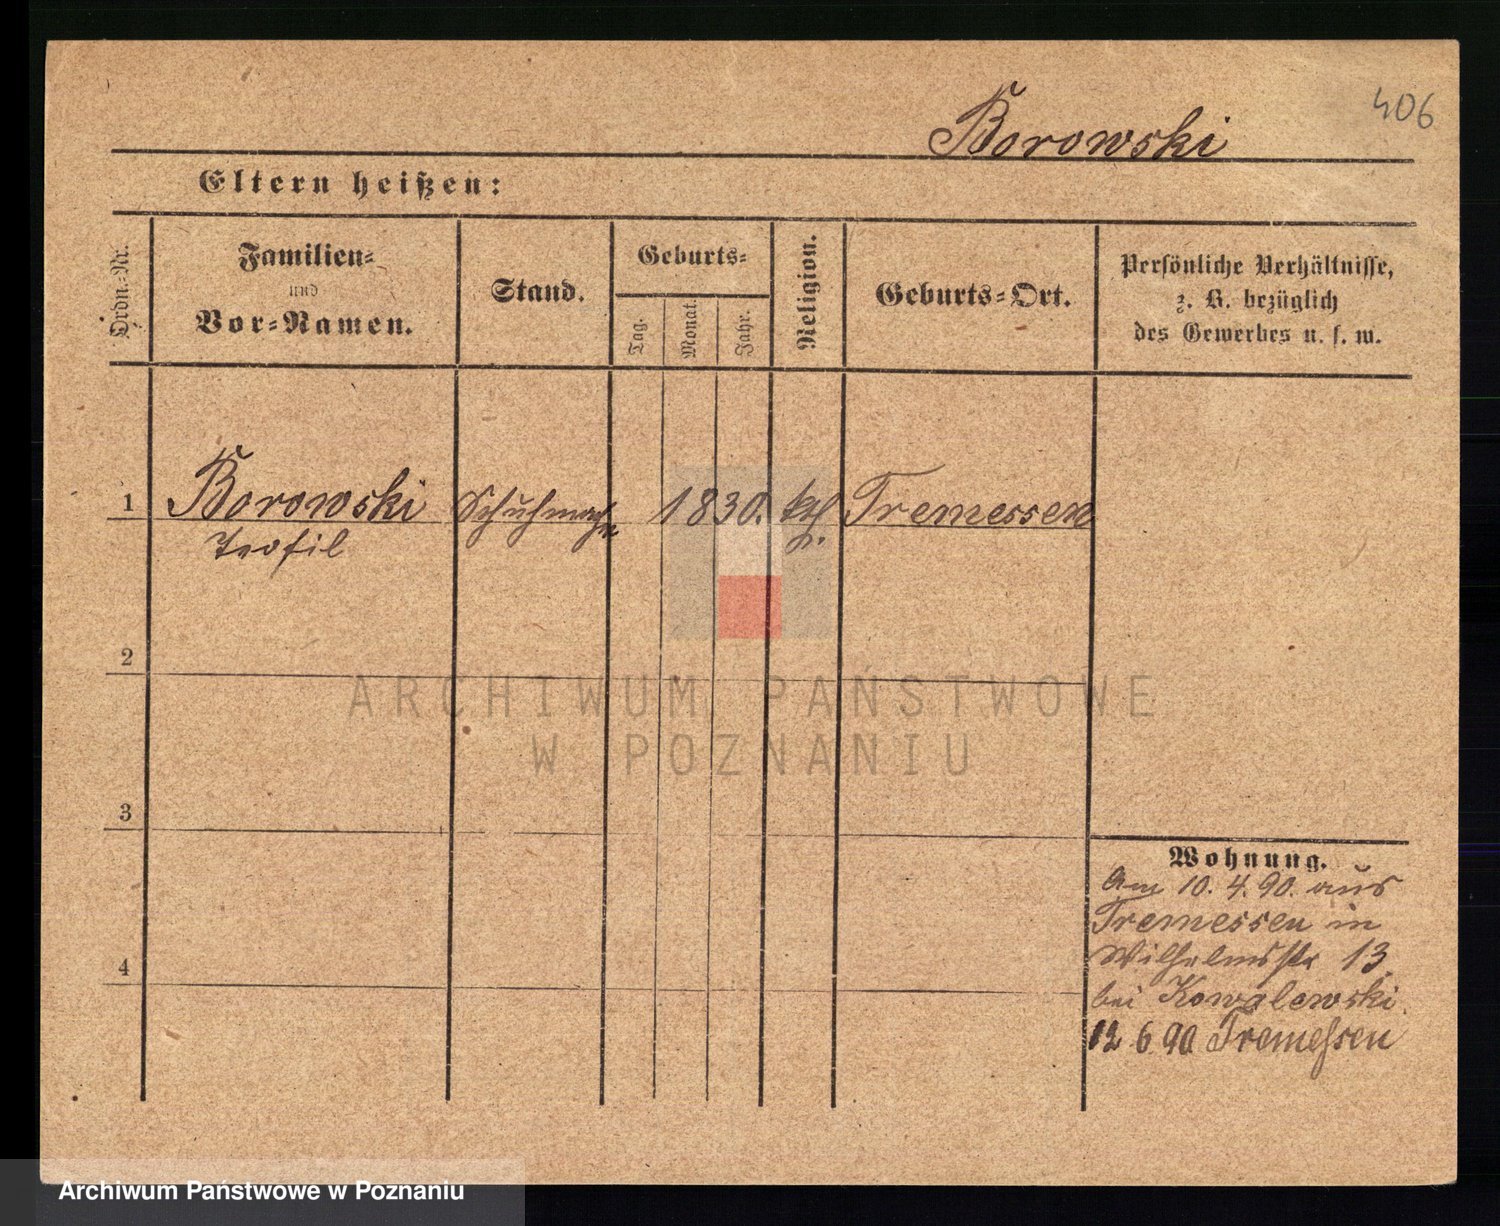 406
Borowski
Eltern heißen:
Ordn.-Nr.
Familien-
und
Vor-Namen.
Stand.
Geburts-
Tag.
Monat.
Jahr.
Religion.
Geburts-Ort.
Persönliche Verhältnisse,
z. B. bezüglich
des Gewerbes u. s. w.
1 Borowski Schuhmacher 1830. kth. Tremessen
Teofil
2
ARCHIWUM PAŃSTWOWE
W POZNANIU
3
Wohnung.
Am 10. 4. 90. aus
Tremessen in
Wilhelmsstr 13
4
bei Kowalewski.
12 6 90 Tremessen
Archiwum Państwowe w Poznaniu